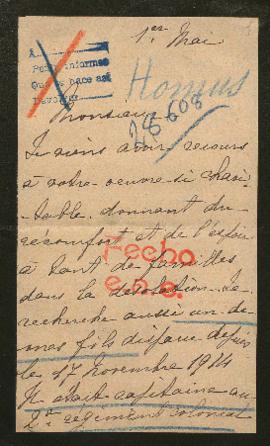 1er Mai
A
Para informes
Que se hace así
Devolver
Homus
28608
Monsieur
Je viens avoir recours
à votre oeuvre si chari-
table donnant du
réconfort et de l'espoir
à tant de familles
dans la désolation. Je
recherche aussi un de
mes fils disparu depuis
le 17 Novembre 1914
Il était capitaine au
2e régiment colonial
Fecho
e.n.e.